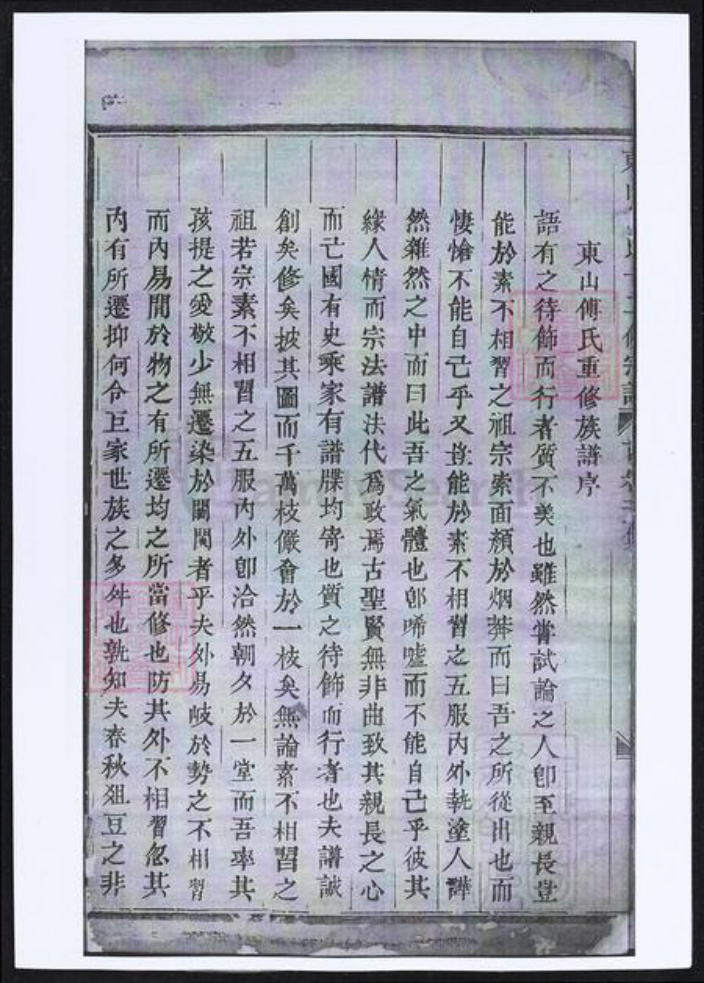 東山傅氏重修族譜序
語有之待飾而行者質不美也雖然嘗試論之人卽至親長豈
能於素不相習之祖宗索面顏於烟莽而曰吾之所從出也而
悽愴不能自已乎又豈能於素不相習之五服內外執塗人譁
然雜然之中而曰此吾之氣體也卽唏噓而不能自已乎彼其
緣人情而宗法譜法代爲政焉古聖賢無非曲致其親長之心
而已國有史乘家有譜牒均寄也質之待飾而行者也夫譜誠
創矣修矣披其圖而千萬枝儼會於一枝矣無論素不相習之
祖若宗素不相習之五服內外卽洽然朝夕於一堂而吾率其
孩提之愛敬少無遷染於閫閾者乎夫外易岐於勢之不相習
而內易間於物之有所遷均之所當修也防其外不相習忽其
內有所遷抑何令巨家世族之多舛也孰知夫春秋俎豆之非